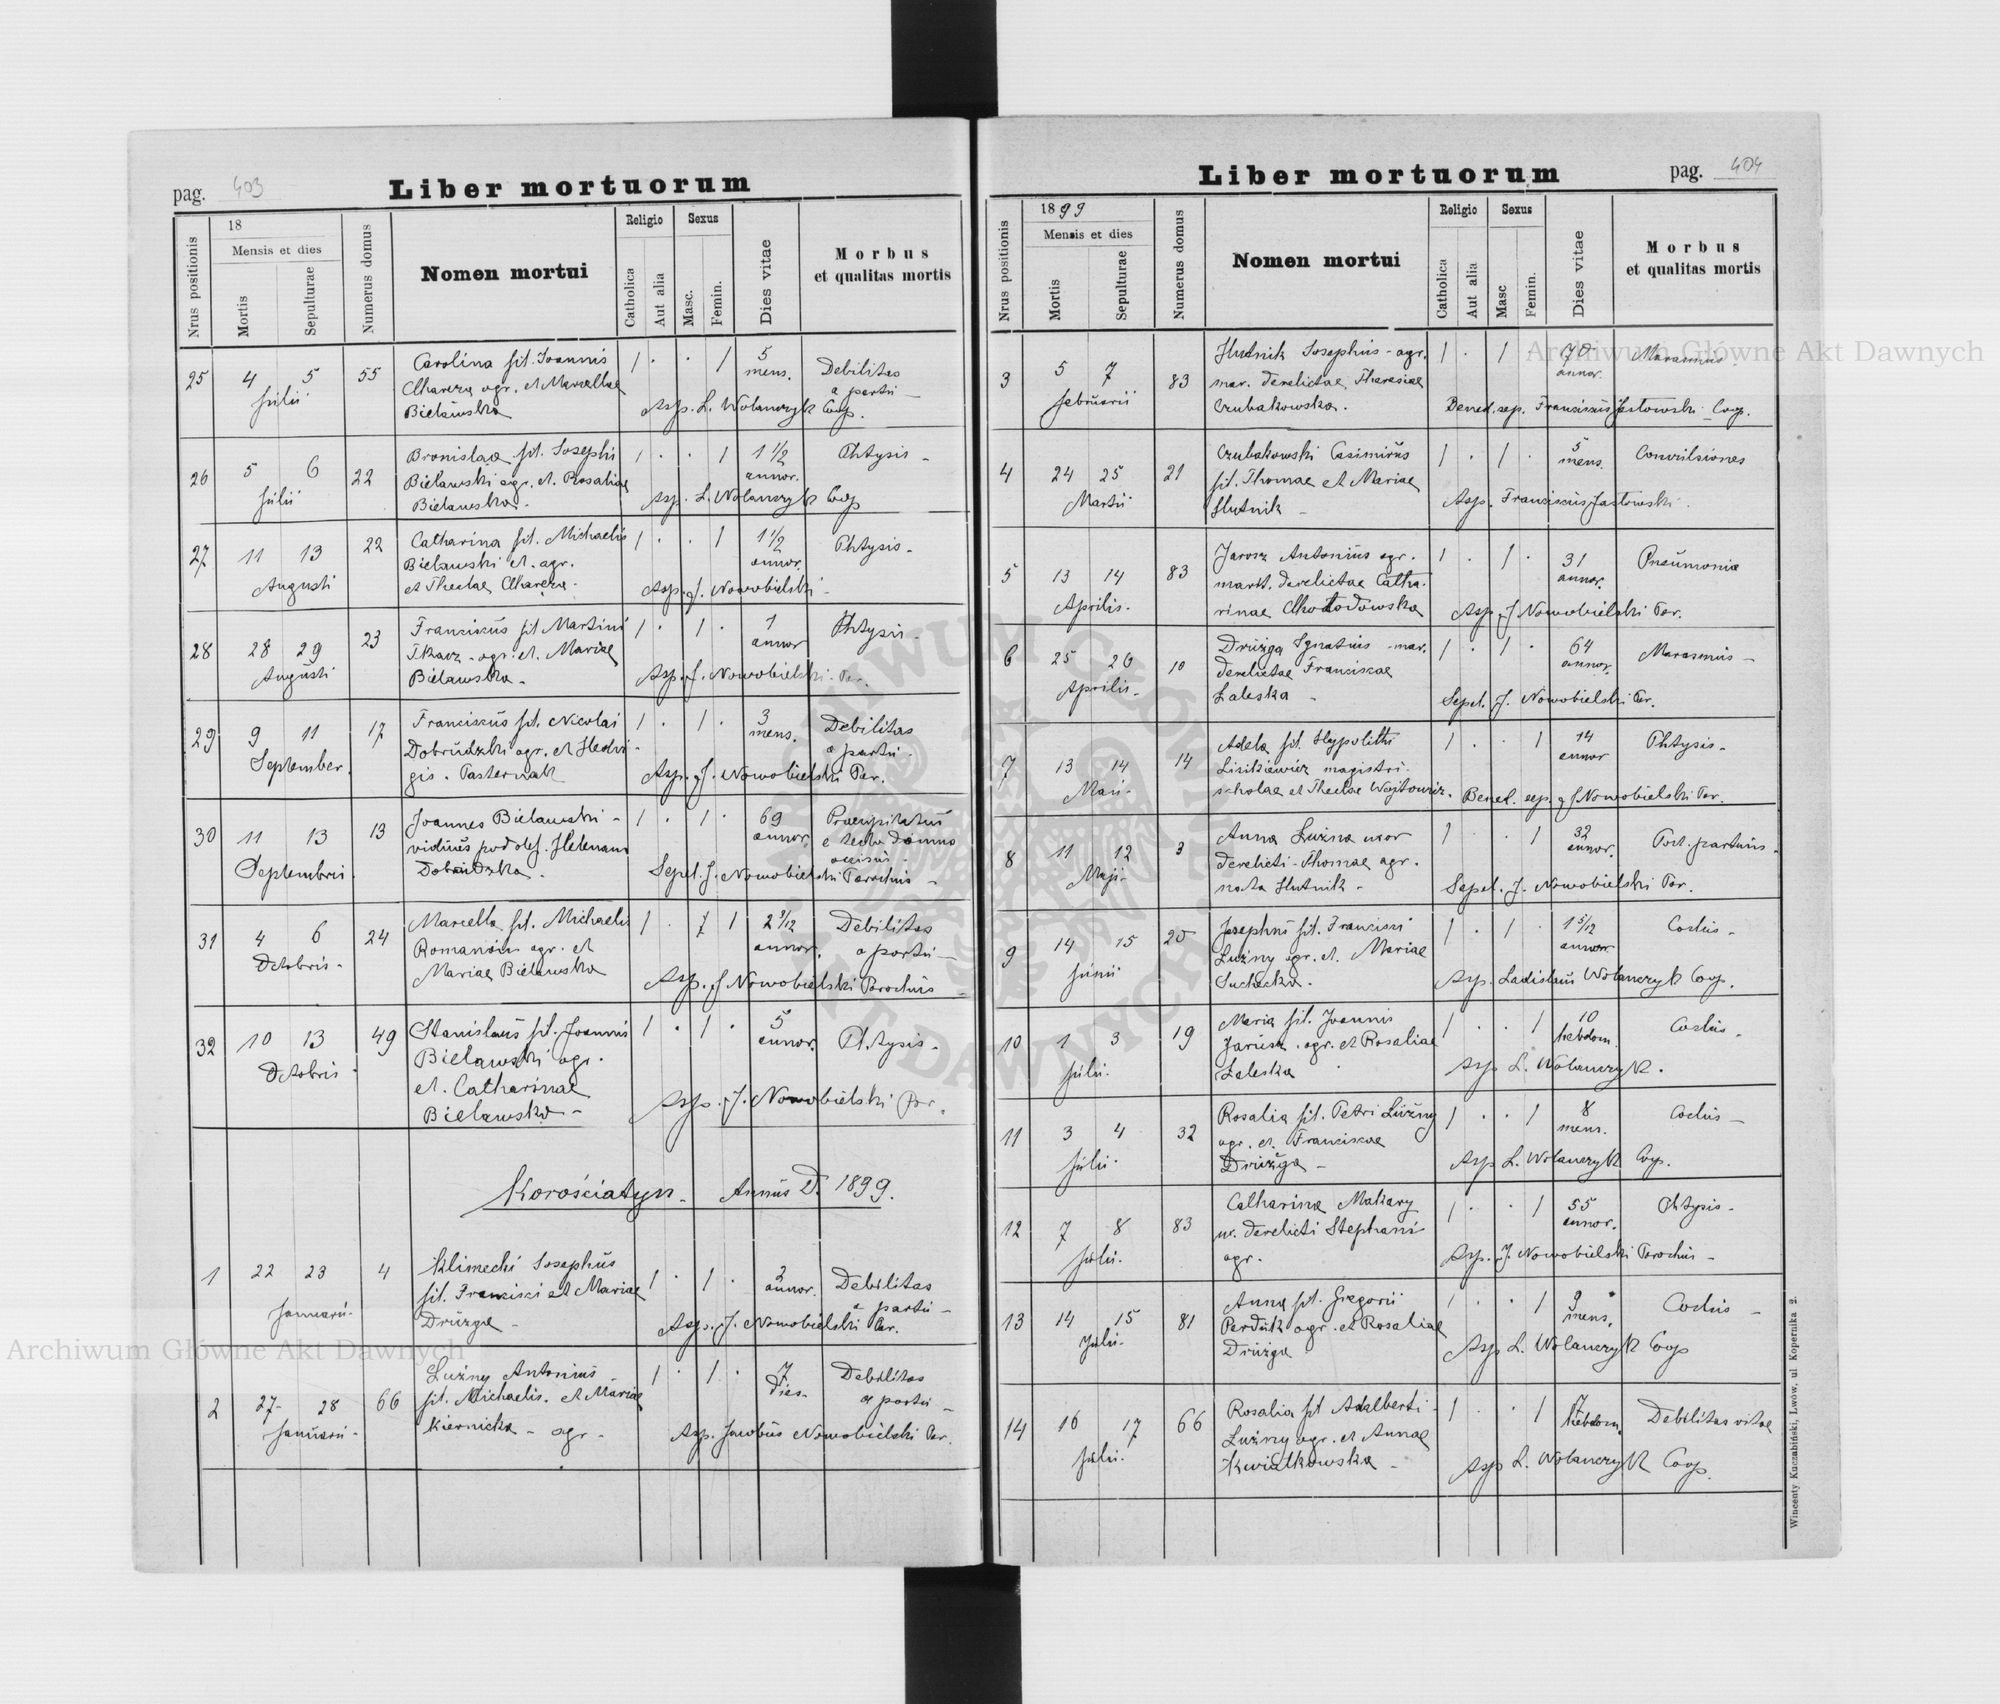 pag. 403
Liber mortuorum
Nrus positionis
18
Mensis et dies
Mortis
Sepulturae
Numerus domus
Nomen mortui
Religio
Catholica
Aut alia
Sexus
Masc.
Femin.
Dies vitae
Morbus
et qualitas mortis
25 4 5 Julii 55
Carolina fil. Joannis
Charęza agr. et Marcellae
Bielawska
1 . . 1 5 mens. Debilitas
a partu
Asp. L. Wolanczyk Coop.
26 5 6 Julii 22
Bronislaa fil. Josephi
Bielawski agr. et Rosaliae
Bielawska.
1 . . 1 1 1/2 annor. Phtysis -
Asp. L. Wolanczyk Coop
27 11 13 Augusti 22
Catharina fil. Michaelis
Bielawski et. agr.
et Theclae Charęza.
1 . . 1 1 1/2 annor. Phtysis -
Asp. J. Nowobielski -
28 28 29 Augusti 23
Franciscus fil Martini
Tkacz - agr. et. Mariae
Bielawska -
1 . 1 . 1 annor Phtysis -
Asp. J. Nowobielski - Par.
29 9 11 September. 17
Franciscus fil. Nicolai
Dobrudzki agr. et Hedvi -
gis. Pasternak
1 . 1 . 3 mens. Debilitas
a partu -
Asp. J. Nowobielski Par.
30 11 13 Septembris. 13
Joannes Bielawski -
viduus post def. Helenam
Dobrudzka.
1 . 1 . 69 annor. Praecipitatus
e tecto domus
occisus -
Sepel. J. Nowobielski Parochus -
31 4 6 Octobris - 24
Marcella fil. Michaelis
Romanów agr. et
Mariae Bielawska
1 . 1 2 3/12 annor. Debilitas
a partu -
Asp. J Nowobielski Parochus
32 10 13 Octobris 49
Stanislaus fil. Joannis
Bielawski agr.
et. Catharinae
Bielawska -
1 . 1 . 5 annor. Phtysis -
Asp. J. Nowobielski Par.
Korościatyn - Annus D. 1899.
1 22 23 Januarii - 4
Klimecki Josephus
fil. Francisci et Mariae
Drużga -
1 . 1 . 2 annor. Debilitas
a partu -
Asp. J. Nowobielski Par.
2 27 - 28 Januarii - 66
Luzny Antonius
fil. Michaelis. et Mariae
Kiernicka - agr -
1 . 1 . 7 dies - Debilitas
a partu -
Asp. Jacobus Nowobielski Par.
Liber mortuorum
pag. 404
Nrus positionis
1899
Mensis et dies
Mortis
Sepulturae
Numerus domus
Nomen mortui
Religio
Catholica
Aut alia
Sexus
Masc
Femin.
Dies vitae
Morbus
et qualitas mortis
3 5 7 februarii 83
Hutnik Josephus - agr.
mar. derelictae Theresiae
Czubakowska.
1 . 1 70 annor. Marasmus
Bened. sep. Franciscus Jastowski - Coop.
4 24 25 Martii 21
Czubakowski Casimirus
fil. Thomae et Mariae
Hutnik -
1 . 1 . 5 mens. Convulsiones
Asp. Franciscus Jastowski.
5 13 14 Aprilis - 83
Jarosz Antonius agr.
marit. derelictae Catha-
rinae Chołodowska
1 . 1 . 31 annor. Pneumonia
Asp. J Nowobielski Par.
6 25 26 Aprilis - 10
Drużga Ignatius mar.
derelictae Franciscae
Zaleska -
1 . 1 . 64 annor. Marasmus -
Sepel. J. Nowobielski Par.
7 13 14 Maii - 14
Adela fil. Hypolithi
Lisikiewicz magistri
scholae et Theclae Wojtowicz.
1 . . 1 14 annor Phtysis -
Bened. sep. J Nowobielski Par.
8 11 12 Maji - 3
Anna Luzna uxor
derelicti - Thomae agr.
nata Hutnik -
1 . . 1 32 annor. Post. partum -
Sepel. J. Nowobielski Par.
9 14 15 Junii 20
Josephus fil. Francisci
Luzny agr. et. Mariae
Suchecka.
1 . 1 . 1 5/12 annor. Coclus -
Asp. Ladislaus Wolanczyk Coop.
10 1 3 Julii. 19
Maria fil. Joannis
Jarosz. agr. et Rosaliae
Zaleska
1 . . 1 10 hebdom. Coclus -
Asp L. Wolanczyk.
11 3 4 Julii. 32
Rosalia fil. Petri Luzny
agr. et. Franciscae
Drużga -
1 . . 1 8 mens. Coclus -
Asp L. Wolanczyk Coop.
12 7 8 Julii. 83
Catharina Makary
ux. derelicti Stephani
agr.
1 . . 1 55 annor. Phtysis -
Asp. J. Nowobielski Parochus -
13 14 15 Julii - 81
Anna fil. Gregorii
Perduk agr. et Rosaliae
Drużga
1 . . 1 9 mens. Coclus -
Asp L. Wolanczyk Coop
14 16 17 Julii. 66
Rosalia fil Adalberti -
Luzny agr. et Annae
Kwiatkowska -
1 . . 1 7 hebdom. Debilitas vitae
Asp L. Wolanczyk Coop.
Wincenty Kuczabiński, Lwów, ul. Kopernika 2.
Archiwum Główne Akt Dawnych
Archiwum Główne Akt Dawnych
ARCHIWUM GŁÓWNE AKT DAWNYCH